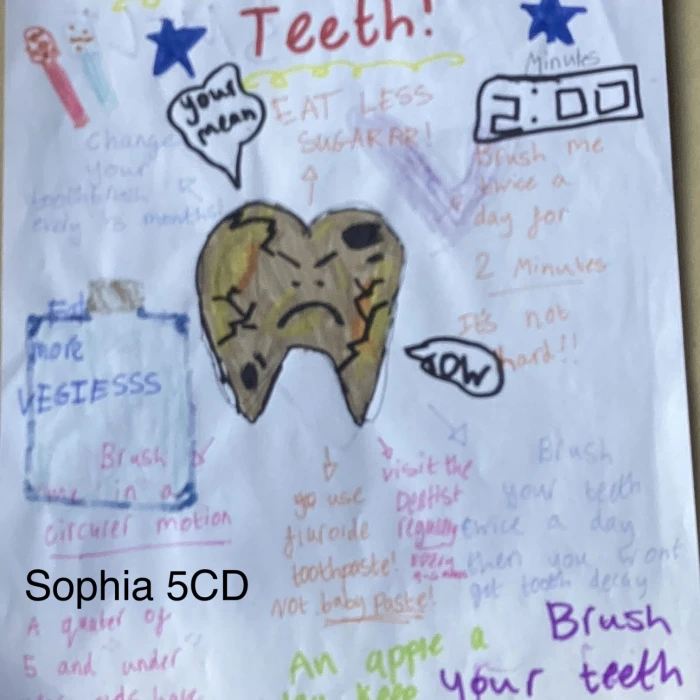 Teeth!
Minutes
2:00
your
mean
EAT LESS
SUGARAR!
Change
your
toothbrush
every 3 months!
Brush me
twice a
day for
2 Minutes
It's not
hard!!
Eat
more
VEGIESSS
OW
Brush
me in a
circuler motion
go use
fluroide
toothpaste!
Not baby Paste!
visit the
Dentist
regually
every
Brush
your teeth
twice a day
then you wont
get tooth decay
Sophia 5CD
A quater of
5 and under
An apple a
day keep
Brush
your teeth